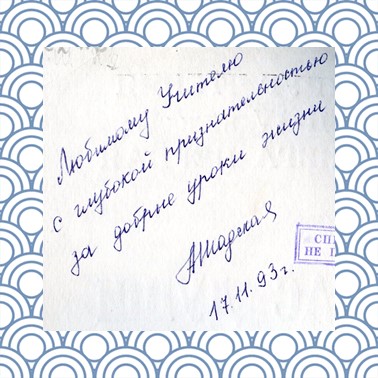 Любимому Учителю
с глубокой признательностью
за добрые уроки жизни
17.11.93г.
СП
НЕ